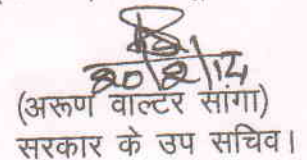 20/2/14
(अरूण वाल्टर सांगा)
सरकार के उप सचिव।